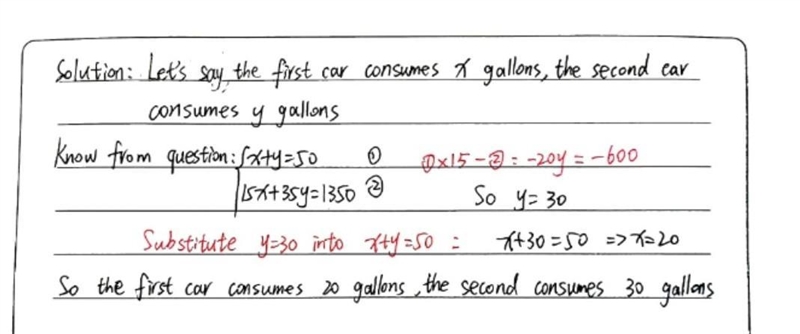 Solution: Let's say, the first car consumes x gallons, the second car
consumes y gallons
Know from question: {x+y=50 ① ①x15-②: -20y=-600
15x+35y=1350 ② So y=30
Substitute y=30 into x+y=50: x+30=50 =>x=20
So the first car consumes 20 gallons, the second consumes 30 gallons